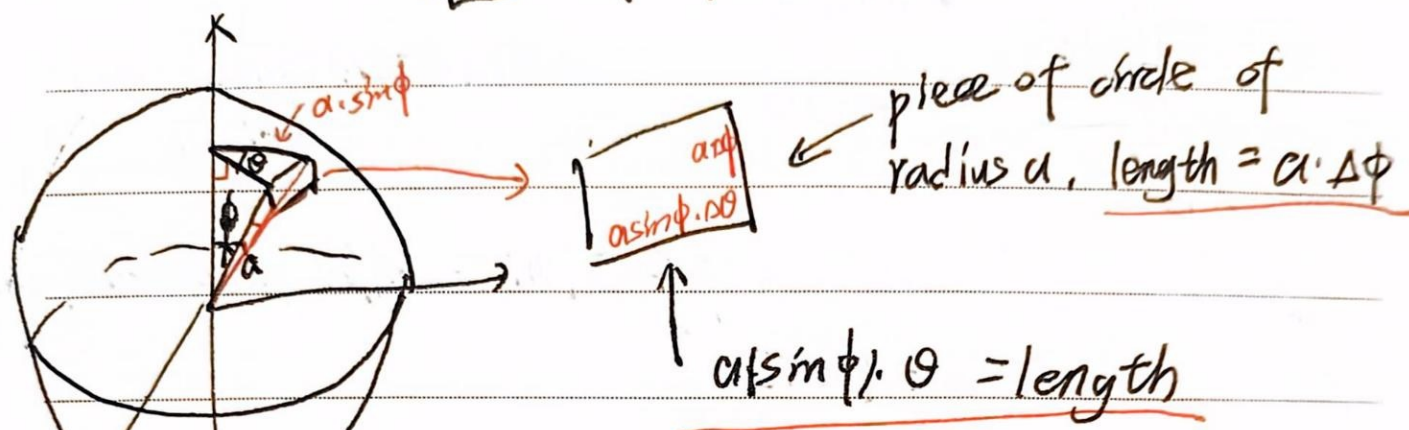 a·sinϕ
θ
ϕ
a
aΔϕ
asinϕ·Δθ
piece of circle of
radius a, length = a·Δϕ
a(sinϕ)·θ = length